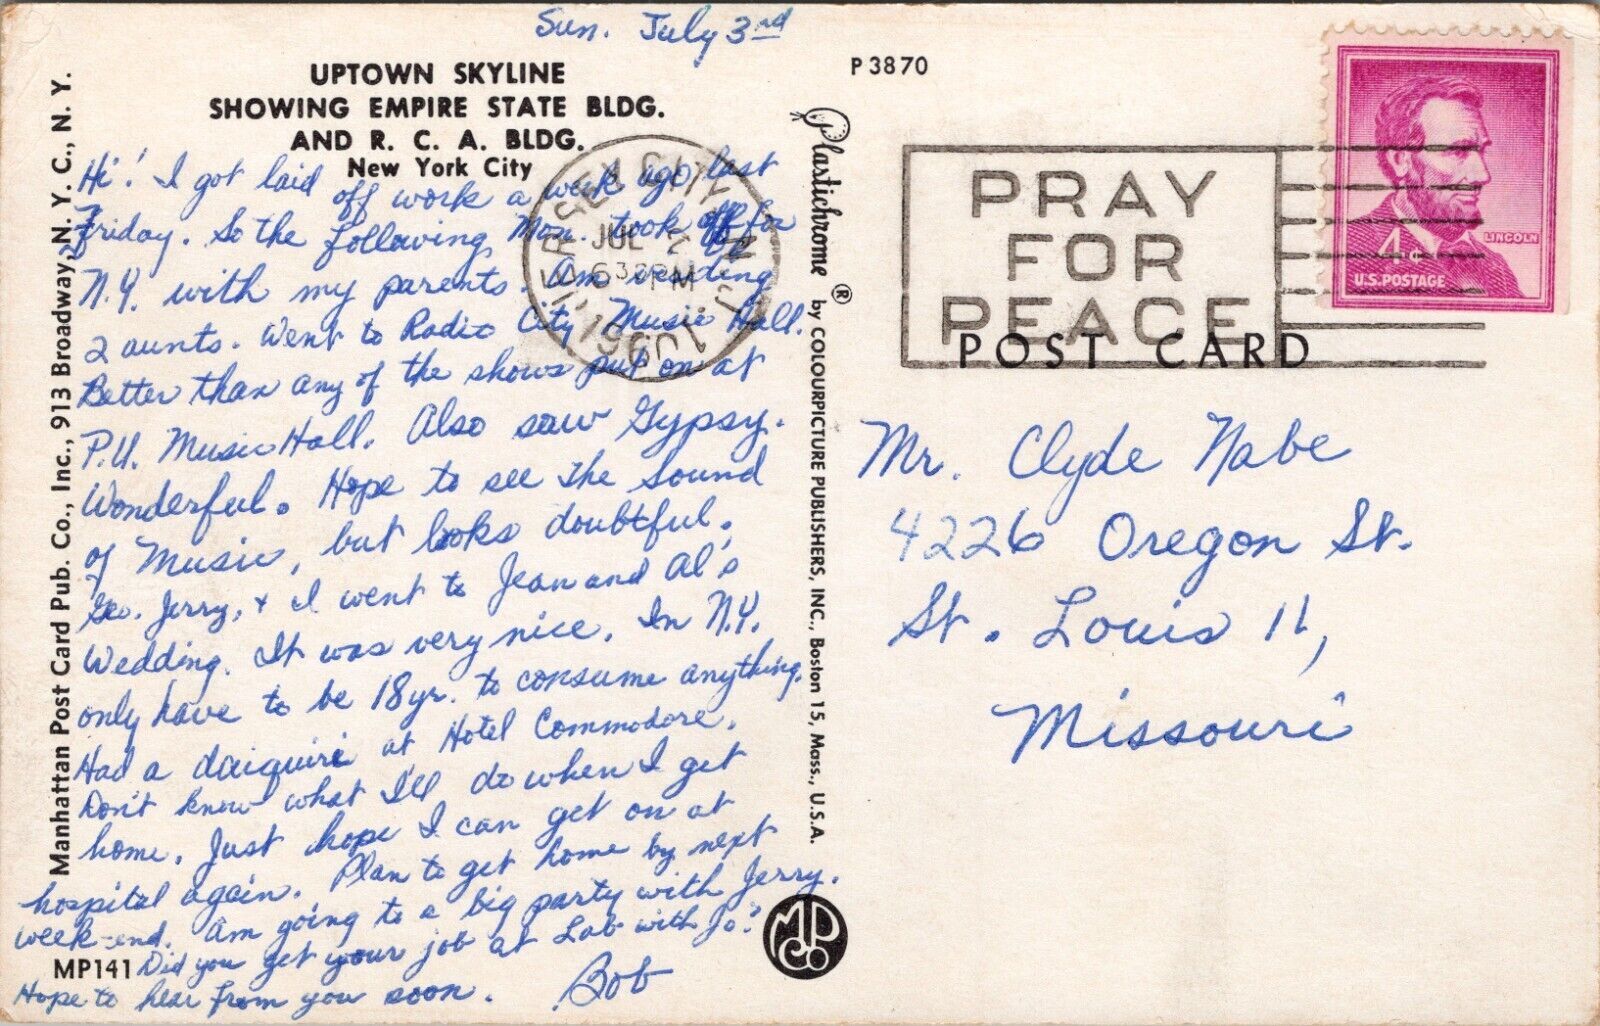 Sun. July 3rd
UPTOWN SKYLINE
SHOWING EMPIRE STATE BLDG.
AND R. C. A. BLDG.
New York City
Hi! I got laid off work a week ago last
Friday. So the following Mon. took off for
N.Y. with my parents. Am
2 aunts. Went to Radio City Music Hall.
Better than any of the shows put on at
P.U. Music Hall. Also saw Gypsy.
Wonderful. Hope to see the Sound
of Music, but looks doubtful.
Geo. Jerry, & I went to Jean and Al's
Wedding. It was very nice. In N.Y.
only have to be 18yr. to consume anything.
Had a daiquiri at Hotel Commodore.
Don't know what I'll do when I get
home. Just hope I can get on at
hospital again. Plan to get home by next
week-end. Am going to a big party with Jerry.
Did you get your job at Lab with Jo?
Hope to hear from you soon. Bob
MP141
Manhattan Post Card Pub. Co., Inc., 913 Broadway, N. Y. C., N. Y.
Plastichrome ® by COLOURPICTURE PUBLISHERS, INC., Boston 15, Mass., U.S.A.
MP
Co
P3870
JERSEY CITY, N.J.
JUL
6 30 PM
1960
PRAY
FOR
PEACE
POST CARD
4c
LINCOLN
U.S. POSTAGE
Mr. Clyde Nabe
4226 Oregon St.
St. Louis 11,
Missouri